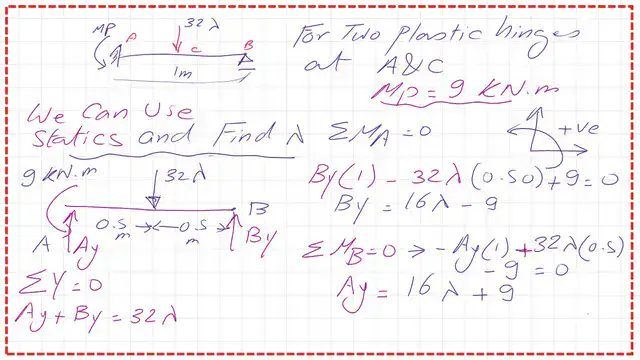 MP
A
32λ
C
B
1m
For Two plastic hinges
at A&C
Mp = 9 KN.m
We Can Use
Statics and Find λ
ΣMA = 0
+ve
9 KN.m
32λ
0.5 m
0.5 m
B
A
Ay
By
By(1) - 32λ(0.50) + 9 = 0
By = 16λ - 9
ΣMB = 0 → - Ay(1) + 32λ(0.5)
- 9 = 0
Ay = 16λ + 9
ΣY = 0
Ay + By = 32λ